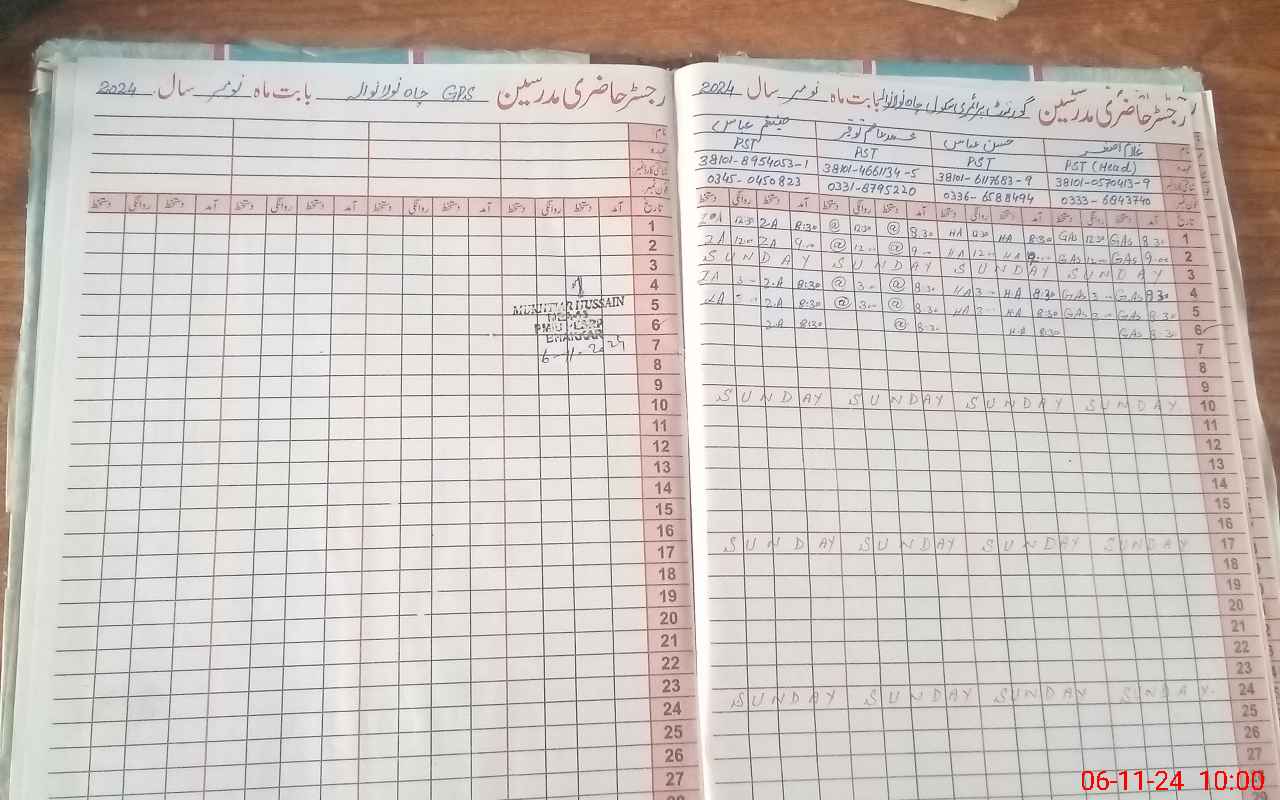 رجسٹر حاضری مدرسین گورنمنٹ پرائمری سکول چاہ نولانوالہ بابت ماہ نومبر سال 2024
نام غلام اصغر حسن عباس محمد عاصم توقیر ضیغم عباس
عہدہ PST (Head) PST PST PST
38101-0570413-9 38101-6117683-9 38101-4661134-5 38101-8954053-1
فون نمبر 0333-6843740 0336-6588494 0331-8795220 0345-0450823
تاریخ آمد دستخط روانگی دستخط آمد دستخط روانگی دستخط آمد دستخط روانگی دستخط آمد دستخط روانگی دستخط
1 8:30 GAS 12:30 GAS 8:30 HA 12:30 HA 8:30 @ 12:30 @ 8:30 ZA 12:30 ZA
2 9:00 GAS 12:00 GAS 9:00 HA 12:00 HA 9:00 @ 12:00 @ 9:00 ZA 12:00 ZA
3 SUNDAY SUNDAY SUNDAY SUNDAY
4 8:30 GAS 3- GAS 8:30 HA 3- HA 8:30 @ 3- @ 8:30 ZA 3- ZA
5 8:30 GAS 3- GAS 8:30 HA 3- HA 8:30 @ 3- @ 8:30 ZA ZA
6 8:30 GAS 8:30 HA 8:30 @ 8:30 ZA
7
8
9
10 SUNDAY SUNDAY SUNDAY SUNDAY
11
12
13
14
15
16
17 SUNDAY SUNDAY SUNDAY SUNDAY
18
19
20
21
22
23
24 SUNDAY SUNDAY SUNDAY SUNDAY
25
26
27
رجسٹر حاضری مدرسین GPS چاہ نولانوالہ بابت ماہ نومبر سال 2024
نام
عہدہ
فون نمبر
تاریخ آمد دستخط روانگی دستخط آمد دستخط روانگی دستخط آمد دستخط روانگی دستخط آمد دستخط روانگی دستخط
1
2
3
4
5
6
7
8
9
10
11
12
13
14
15
16
17
18
19
20
21
22
23
24
25
26
27
MUKHTIAR HUSSAIN
BHAKKAR
6-11-2024
06-11-24 10:00